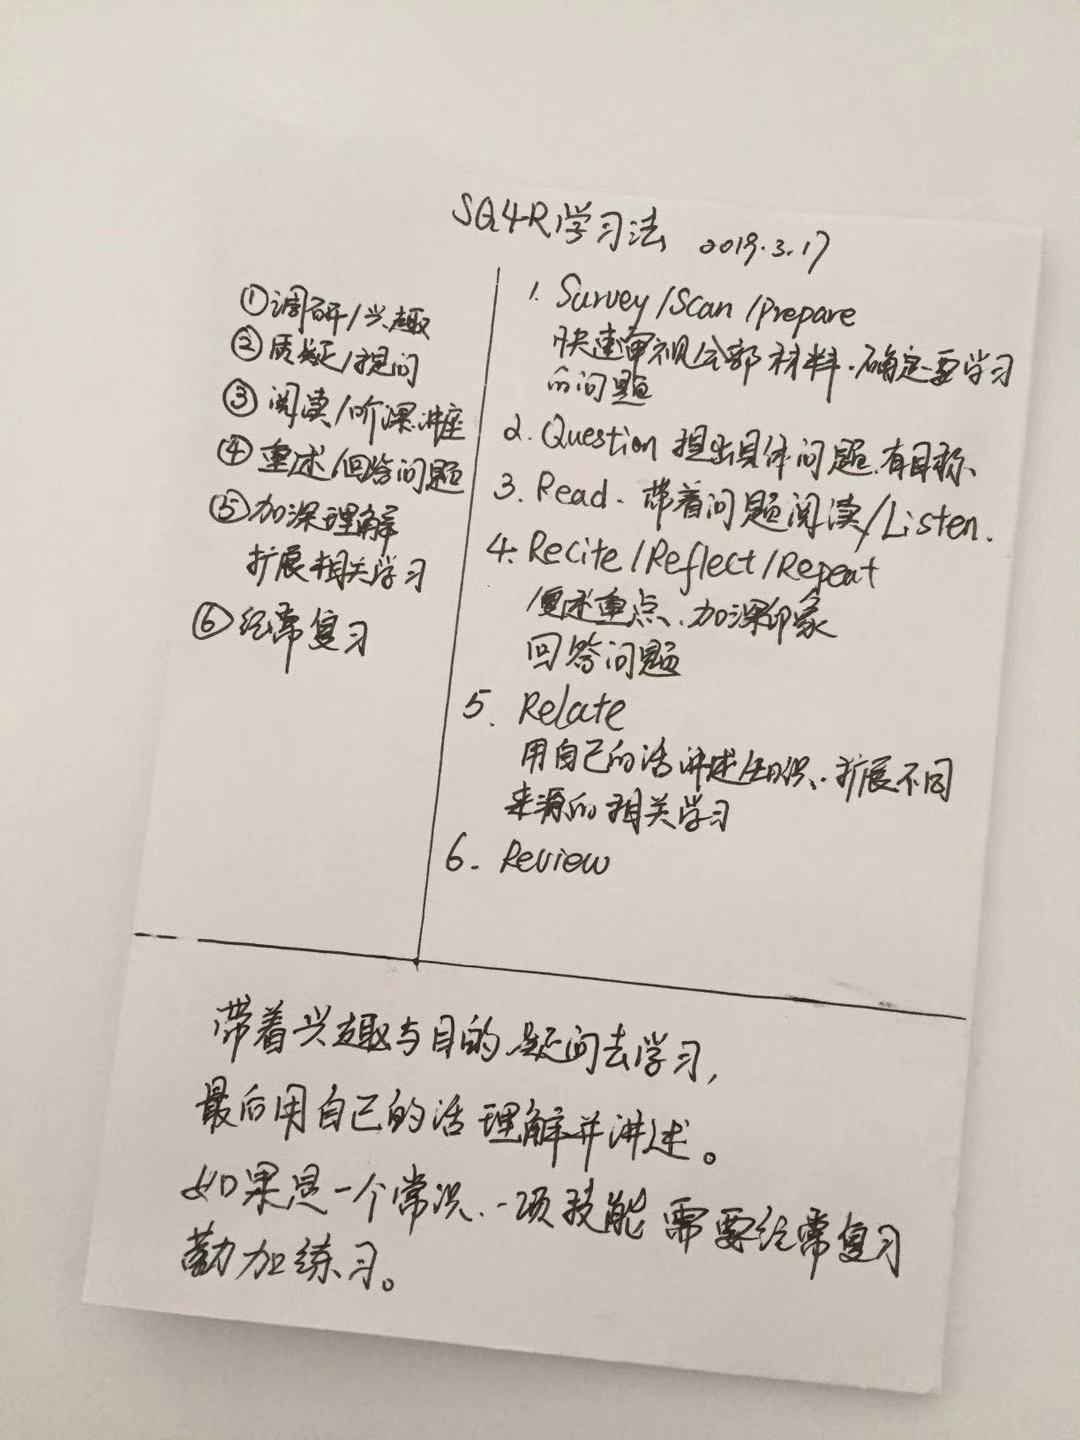 SQ4R学习法 2019.3.17
①调研/兴趣
②质疑/提问
③阅读/听课讲座
④重述/回答问题
⑤加深理解
扩展相关学习
⑥经常复习
1. Survey/Scan/Prepare
快速审视全部材料.确定要学习
的问题
2. Question 提出具体问题.有目标.
3. Read. 带着问题阅读/Listen.
4. Recite/Reflect/Repeat
复述重点.加深印象
回答问题
5. Relate
用自己的话讲述知识.扩展不同
来源的相关学习
6. Review
带着兴趣与目的.疑问去学习,
最后用自己的话理解并讲述。
如果是一个常识.一项技能需要经常复习
勤加练习。